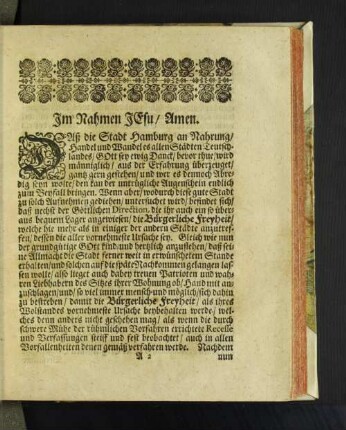 Im Nahmen JEsu / Amen.
DAß die Stadt Hamburg an Nahrung /
Handel und Wandel es allen Städten Teutsch-
landes / GOtt sey ewig Danck / bevor thue / wird
männiglich / aus der Erfahrung überzeuget /
gantz gern gestehen / und wer es dennoch Abre-
dig seyn wolte / den kan der untrügliche Augenschein endlich
zum Beyfall bringen. Wenn aber / wodurch diese gute Stadt
zu solch Aufnehmen gediehen / untersuchet wird / befindet sich /
daß nechst der Göttlichen Direction, die ihr auch ein so über
aus bequem Lager angewiesen / die Bürgerliche Freyheit /
welche hie mehr als in einiger der andern Städte anzutref-
fen / dessen die aller vornehmeste Ursach sey. Gleich wie nun
der grundgütige GOtt kind und hertzlich anzuflehen / daß sei-
ne Allmacht die Stadt ferner weit in erwünschetem Stande
erhalten / und solchen auf die späte Nachkommen gelangen las-
sen wolle / also lieget auch dabey treuen Patrioten und wah-
ren Liebhabern des Sitzes ihrer Wohnung ob / Hand mit an
zuschlagen / und / so viel immer mensch- und möglich / sich dahin
zu bestreben / damit die Bürgerliche Freyheit / als ihres
Wolstandes vornehmeste Ursache beybehalten werde / wel-
ches denn anders nicht geschehen mag / als wenn die durch
schwere Mühe der rühmlichen Vorfahren errichtete Recesse
und Verfassungen steiff und fest beobachtet / auch in allen
Vorfallenheiten denen gemäß verfahren werde. Nachdem
A 2 nun